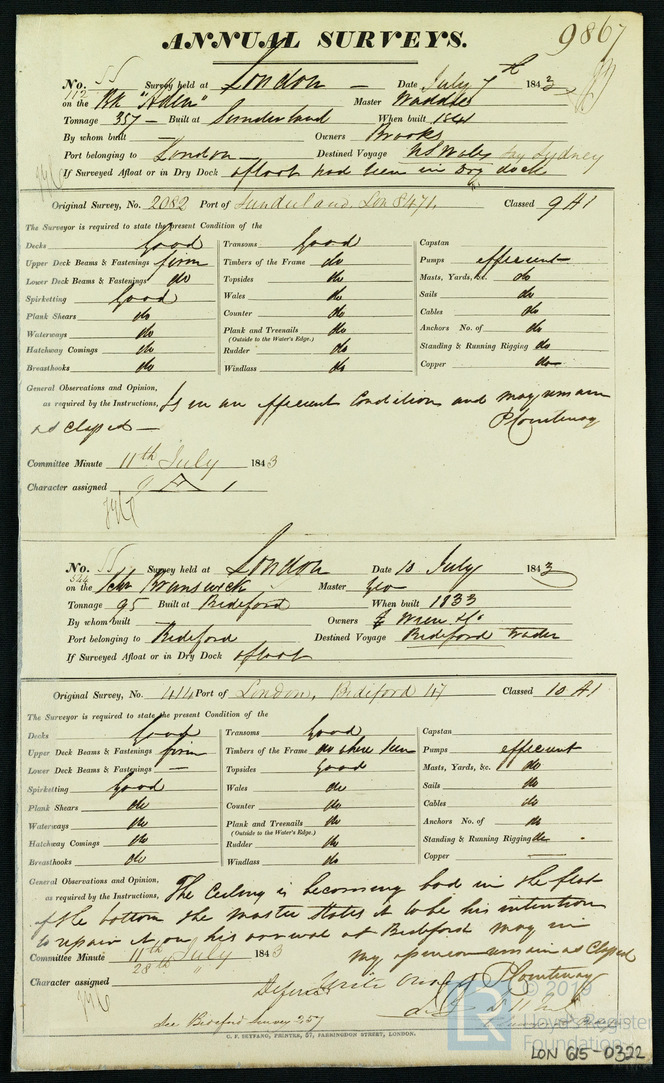 ANNUAL SURVEYS.
9867
No. 55 Survey held at London Date July 7th 1843
on the Bk "Aden" Master Waddle
Tonnage 357 — Built at Sunderland When built 1841
By whom built — Owners Brooks
Port belonging to London — Destined Voyage N S Wales say Sydney
If Surveyed Afloat or in Dry Dock afloat had been in Dry dock
Original Survey, No. 2082 Port of Sunderland, Lon 8471. Classed 9 A1
The Surveyor is required to state the present Condition of the
Decks Good Transoms Good Capstan
Upper Deck Beams & Fastenings firm Timbers of the Frame do Pumps efficient
Lower Deck Beams & Fastenings do Topsides do Masts, Yards, &c. do
Spirketting Good Wales do Sails do
Plank Shears do Counter do Cables do
Waterways do Plank and Treenails do Anchors No. of do
(Outside to the Water's Edge.)
Hatchway Comings do Rudder do Standing & Running Rigging do
Breasthooks do Windlass do Copper do
General Observations and Opinion,
as required by the Instructions, Is in an efficient Condition and may remain
as Classed — P Courtenay
Committee Minute 11th July 1843
Character assigned 9 A 1
No. 55 Survey held at London Date 10 July 1843
on the Schr Brunswick Master Yeo
Tonnage 95 Built at Bideford When built 1833
By whom built — Owners Wren & Co
Port belonging to Bideford Destined Voyage Bideford Trader
If Surveyed Afloat or in Dry Dock afloat
Original Survey, No. 414 Port of London, Bideford 47 Classed 10 A1
The Surveyor is required to state the present Condition of the
Decks Good Transoms Good Capstan
Upper Deck Beams & Fastenings firm Timbers of the Frame no where seen Pumps efficient
Lower Deck Beams & Fastenings — Topsides Good Masts, Yards, &c. do
Spirketting Good Wales do Sails do
Plank Shears do Counter do Cables do
Waterways do Plank and Treenails do Anchors No. of do
(Outside to the Water's Edge.)
Hatchway Comings do Rudder do Standing & Running Rigging do
Breasthooks do Windlass do Copper —
General Observations and Opinion,
as required by the Instructions, The Ceiling is becoming bad in the flat
of the bottom the Master States it to be his intention
to repair it on his arrival at Bideford may in
my opinion remain as Classed
Committee Minute 11th July 1843
28th "
Character assigned Deferred Write Owner P Courtenay
See Bideford Survey 257
C. F. SEYFANG, PRINTER, 57, FARRINGDON STREET, LONDON.
© 2019
LR Lloyd's Register
Foundation
LON 615-0322